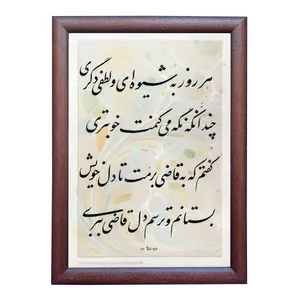 هر روز به شیوه‌ای و لطفی دگری
چندانکه نگه می‌کنمت خوبتری
گفتم که به قاضی برمت تا دل خویش
بستانم و ترسم دل قاضی ببری